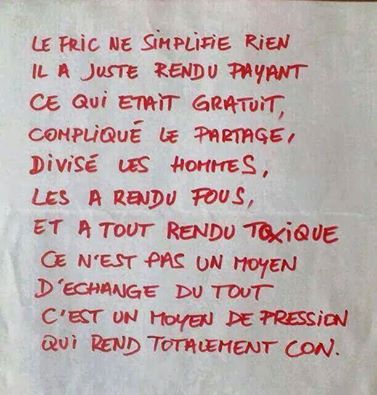 LE FRIC NE SIMPLIFIE RIEN
IL A JUSTE RENDU PAYANT
CE QUI ETAIT GRATUIT,
COMPLIQUÉ LE PARTAGE,
DIVISÉ LES HOMMES,
LES A RENDU FOUS,
ET A TOUT RENDU TOXIQUE
CE N'EST PAS UN MOYEN
D'ECHANGE DU TOUT
C'EST UN MOYEN DE PRESSION
QUI REND TOTALEMENT CON.